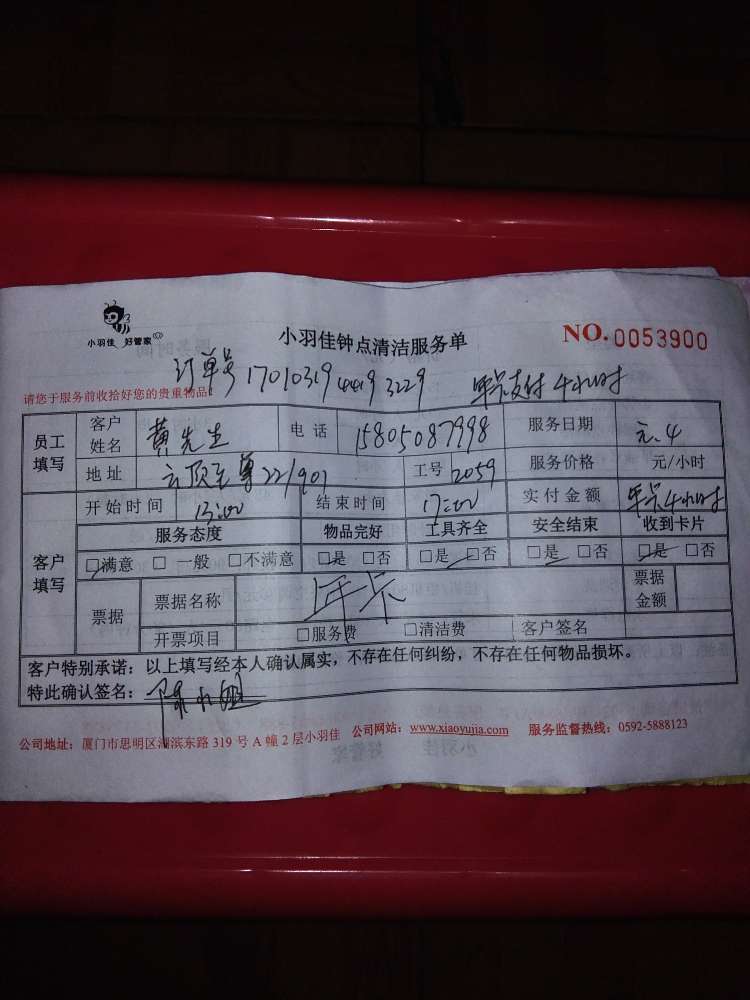 小羽佳 好管家
小羽佳钟点清洁服务单
NO.0053900
订单号 1701031944193229 年卡支付4小时
请您于服务前收拾好您的贵重物品!
员工填写 客户姓名 黄先生 电话 15805087998 服务日期 元.4
地址 云顶至尊22/901 工号 2059 服务价格 元/小时
客户填写 开始时间 13:00 结束时间 17:00 实付金额 年卡4小时
服务态度 物品完好 工具齐全 安全结束 收到卡片
□满意 □一般 □不满意 □是 □否 □是 □否 □是 □否 □是 □否
票据 票据名称 年卡 票据金额
开票项目 □服务费 □清洁费 客户签名
客户特别承诺:以上填写经本人确认属实,不存在任何纠纷,不存在任何物品损坏。
特此确认签名:
公司地址:厦门市思明区湖滨东路 319 号 A 幢 2 层小羽佳 公司网站:www.xiaoyujia.com 服务监督热线:0592-5888123